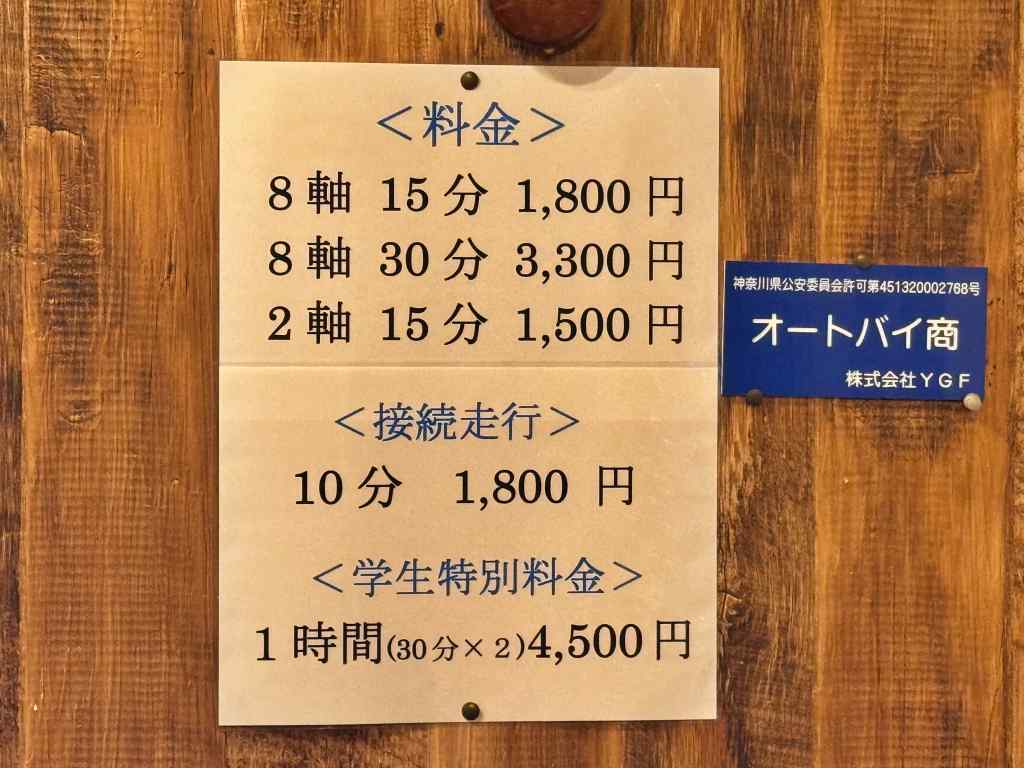 ＜料金＞
8軸 15分 1,800円
8軸 30分 3,300円
2軸 15分 1,500円
＜接続走行＞
10分 1,800 円
＜学生特別料金＞
1時間(30分×2)4,500円
神奈川県公安委員会許可第451320002768号
オートバイ商
株式会社YGF